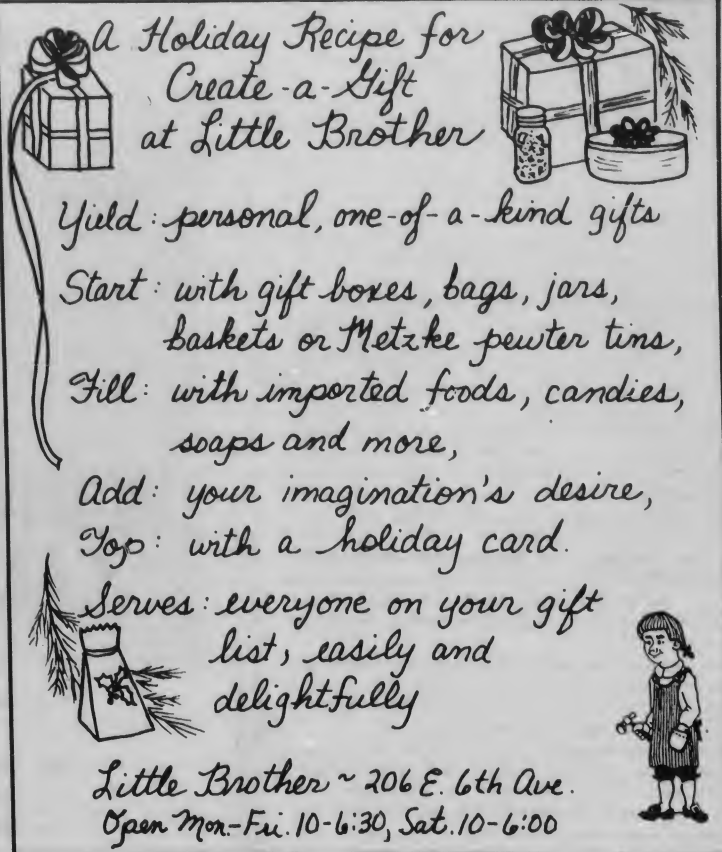 A Holiday Recipe for
Create-a-Gift
at Little Brother
Yield: personal, one-of-a-kind gifts
Start: with gift boxes, bags, jars,
baskets or Metzke pewter tins,
Fill: with imported foods, candies,
soaps and more,
Add: your imagination's desire,
Top: with a holiday card.
Serves: everyone on your gift
list, easily and
delightfully
Little Brother ~ 206 E. 6th Ave.
Open Mon.-Fri. 10-6:30, Sat. 10-6:00